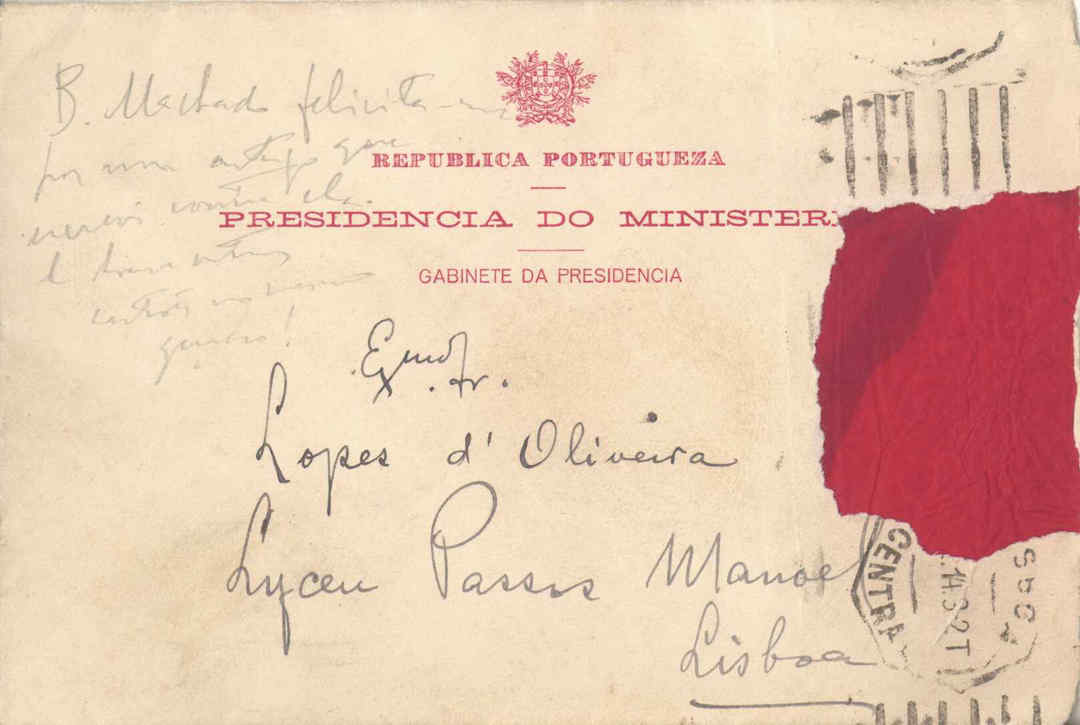 B. Machado felicita-me
por um artigo que
escrevi contra ele.
e
no mesmo
genero!
REPUBLICA PORTUGUEZA
PRESIDENCIA DO MINISTER
GABINETE DA PRESIDENCIA
Exmo Sr.
Lopes d'Oliveira
Lyceu Passos Manoel
Lisboa
CENTRA
14.32T